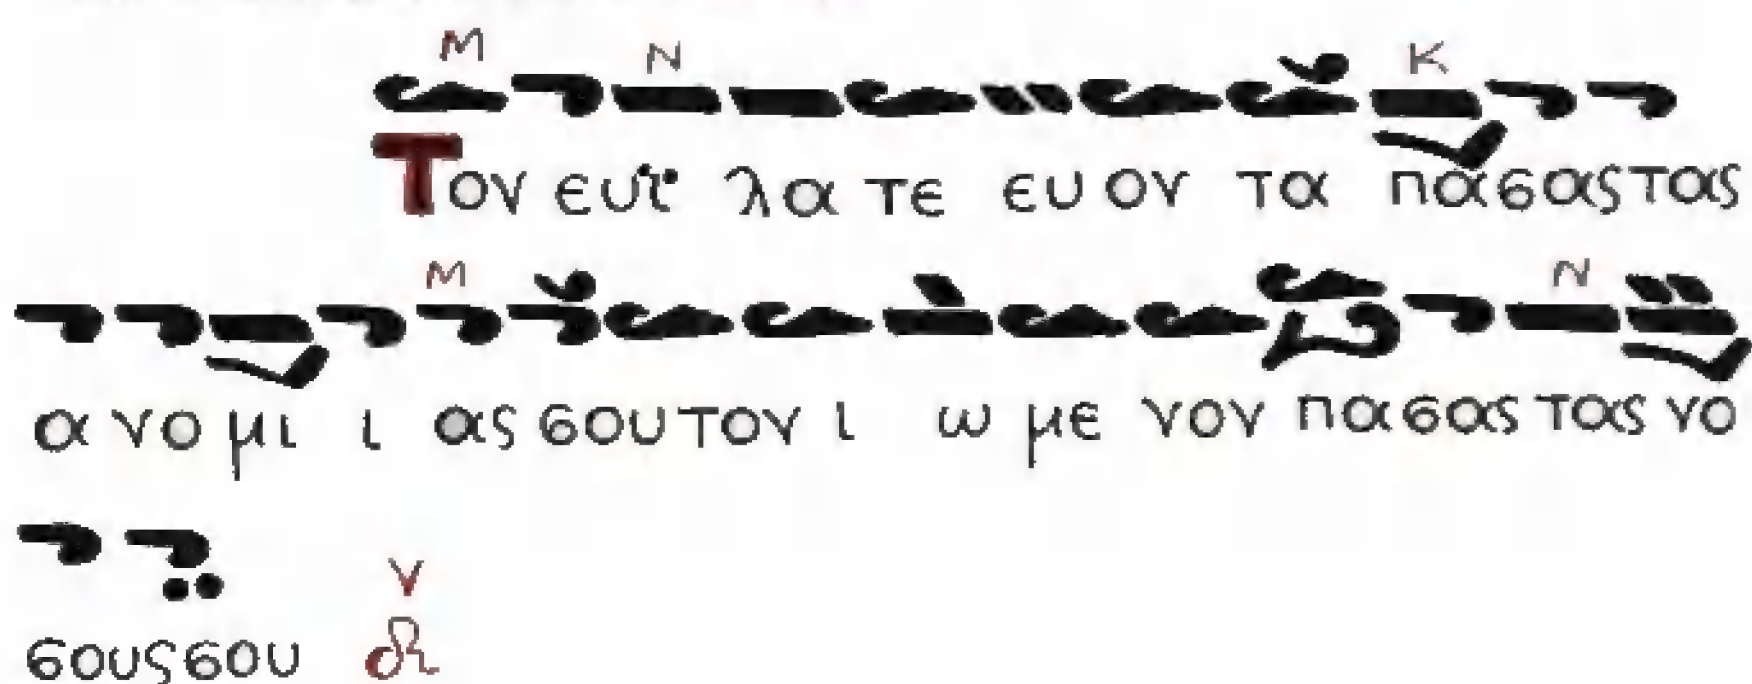 Μ Ν Κ
Τον ευϊ λα τε ευ ον τα πασας τας
Μ Ν
α νο μι ι ας σου τον ι ω με νον πασας τας νο
ν
σους σου δι